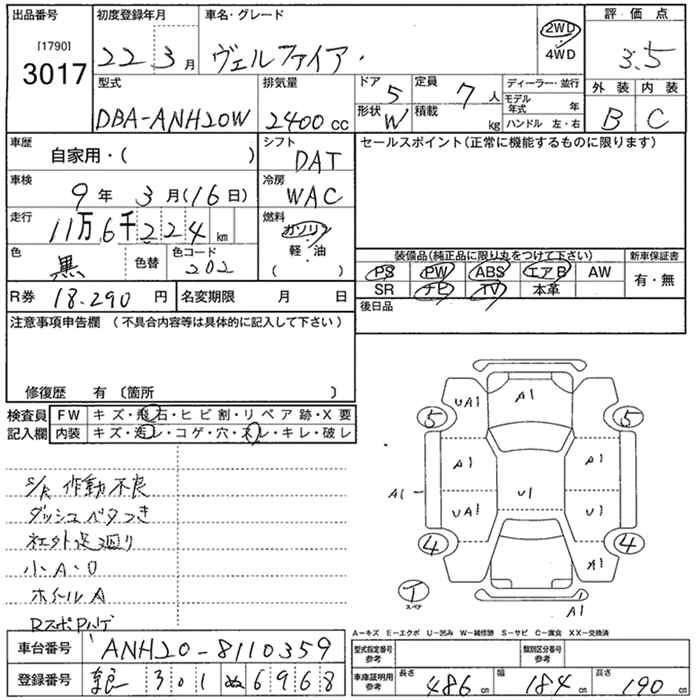 出品番号
[1790]
3017
初度登録年月
22 3月
車名・グレード
ヴェルファイア.
2WD
4WD
評価点
3.5
外装 内装
B C
型式
DBA-ANH20W
排気量
2400cc
ドア 5
形状 W
定員 7人
積載 kg
ディーラー・並行
モデル年式 年
ハンドル 左・右
車歴
自家用・( )
シフト
DAT
車検
9年 3月(16日)
冷房
WAC
走行
11万6千224km
燃料
ガソリン
軽・油
( )
色
黒
色替
色コード
202
R券 18.290円
名変期限 月 日
セールスポイント(正常に機能するものに限ります)
装備品(純正品に限り丸をつけて下さい)
PS PW ABS エアB AW
SR ナビ TV 本革
新車保証書
有・無
後日品
注意事項申告欄 (不具合内容等は具体的に記入して下さい)
修復歴 有 〔箇所 〕
検査員記入欄
FW キズ・飛石・ヒビ割・リペア跡・X要
内装 キズ・汚レ・コゲ・穴・スレ・キレ・破レ
S/R 作動不良
ダッシュベタつき
社外足廻り
小.A.U
ホイールA
車台番号 ANH20-8110359
登録番号 301 ぬ 6968
UA1
A1
5
5
A1
A1
A1
U1
UA1
U1
4
4
A1
T
スペア
A1
A=キズ E=エクボ U=凹み W=補修跡 S=サビ C=腐食 XX=交換済
型式指定番号
参考
類別区分番号
参考
車庫証明用
参考
長さ 486cm
幅 184cm
高さ 190cm